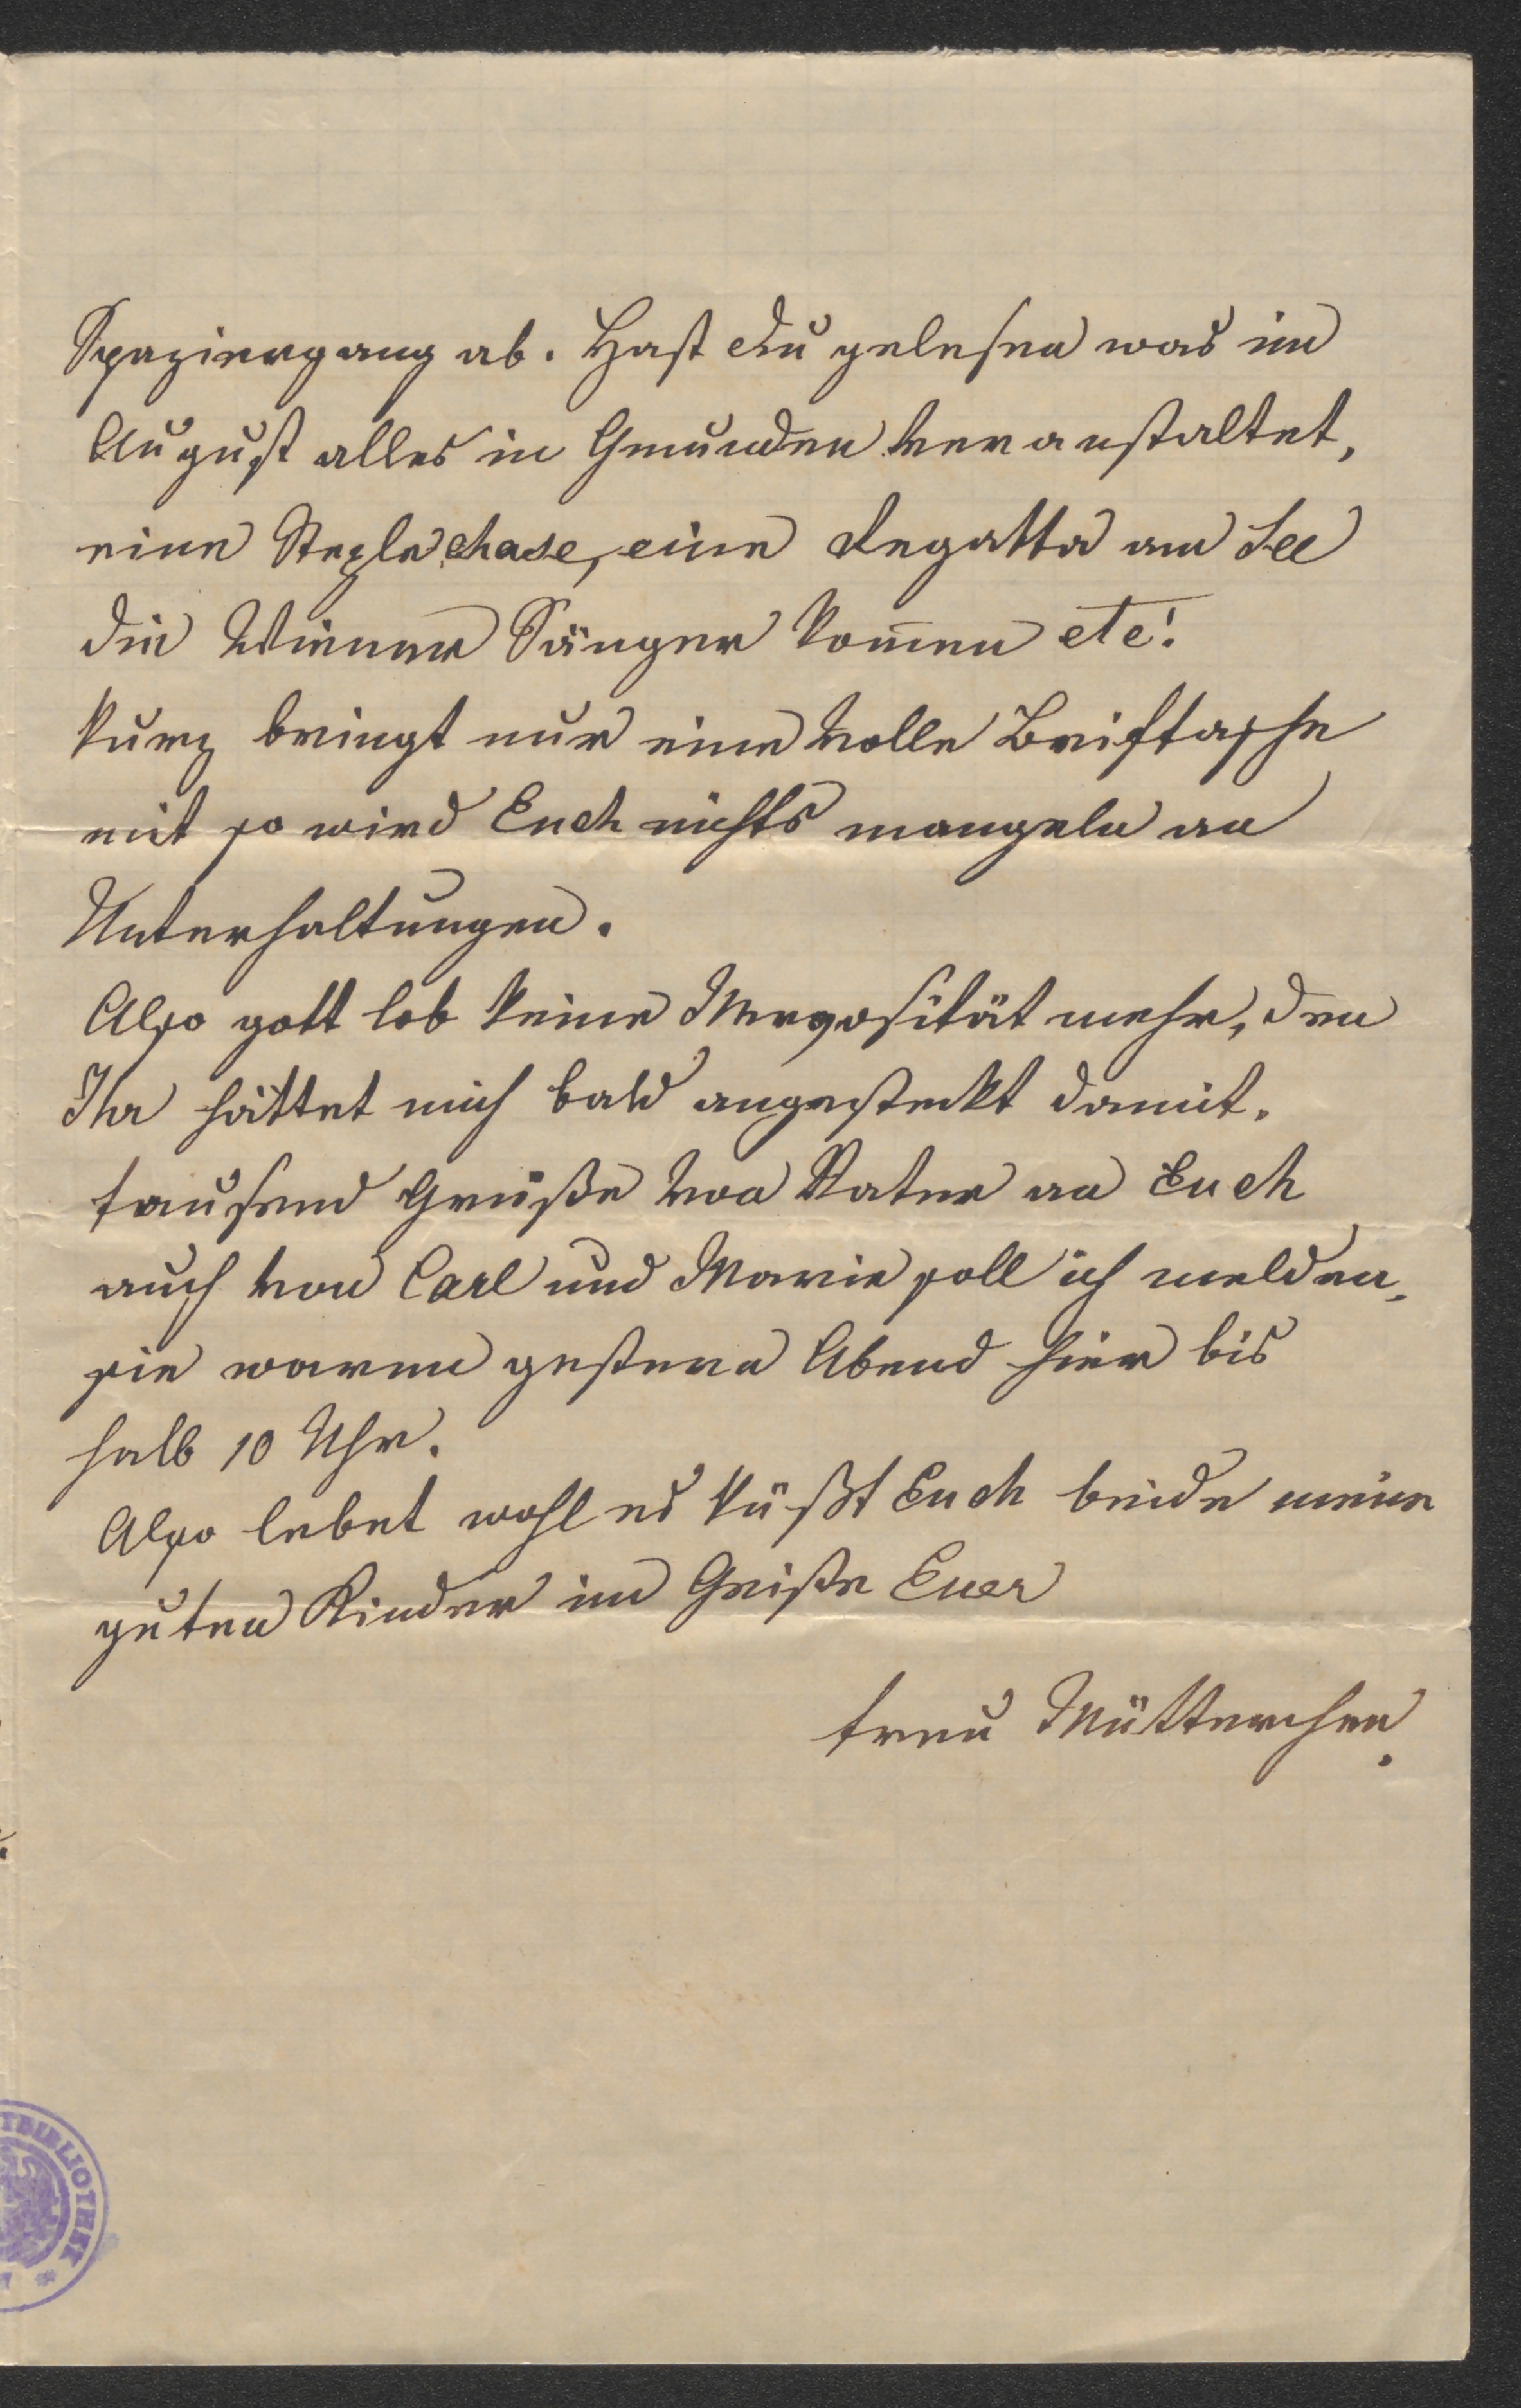 Spaziergang ab. Hast du gelesen was im
August alles in Gmunden veranstaltet,
eine Steple chase, eine Regatta am See
die Wiener Sänger kom̄en etc.
kurz bringt nur eine volle Brieftasche
mit so wird Euch nichts mangeln an
Unterhaltungen.
Also gott lob keine Nervosität mehr, den
Ihr hättet mich bald angesteckt damit.
tausend Grüße von Vater an Euch
auch von Carl und Marie soll ich melden,
sie waren gestern Abend hier bis
halb 10 Uhr.
Also lebet wohl es küßt Euch beide meine
guten Kinder im Geiste Euer
treu Mütterchen.
TBIBLIOTHEK